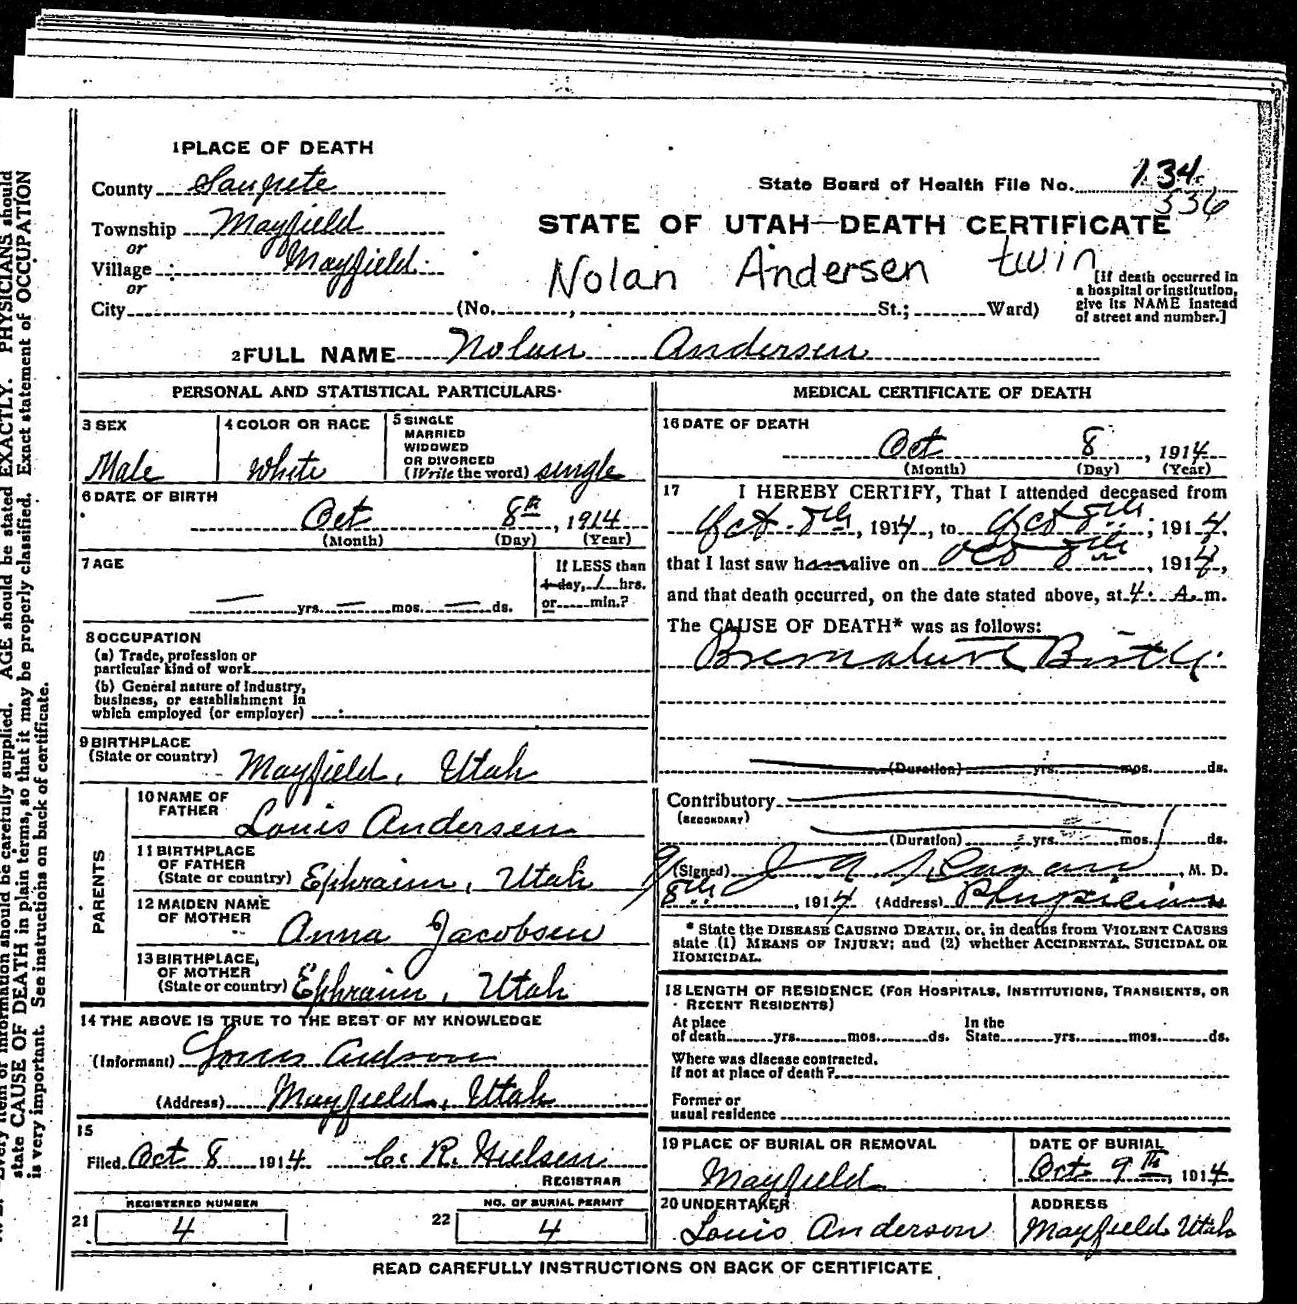 1 PLACE OF DEATH
County Sanpete
Township Mayfield
or
Village Mayfield
or
City (No. , St.; Ward)
State Board of Health File No. 134
336
STATE OF UTAH—DEATH CERTIFICATE
Nolan Andersen twin
[If death occurred in
a hospital or institution,
give its NAME instead
of street and number.]
2 FULL NAME Nolan Andersen
PERSONAL AND STATISTICAL PARTICULARS
3 SEX
Male
4 COLOR OR RACE
White
5 SINGLE
MARRIED
WIDOWED
OR DIVORCED
(Write the word) single
6 DATE OF BIRTH
Oct 8th, 1914
(Month) (Day) (Year)
7 AGE
yrs. mos. ds.
If LESS than
1 day, 1 hrs.
or min.?
8 OCCUPATION
(a) Trade, profession or
particular kind of work
(b) General nature of industry,
business, or establishment in
which employed (or employer)
9 BIRTHPLACE
(State or country)
Mayfield, Utah
PARENTS
10 NAME OF
FATHER
Louis Andersen
11 BIRTHPLACE
OF FATHER
(State or country) Ephraim, Utah
12 MAIDEN NAME
OF MOTHER
Anna Jacobsen
13 BIRTHPLACE,
OF MOTHER
(State or country) Ephraim, Utah
14 THE ABOVE IS TRUE TO THE BEST OF MY KNOWLEDGE
(Informant) Louis
(Address) Mayfield, Utah
15
Filed Oct 8 1914 C. R. Nielsen
REGISTRAR
REGISTERED NUMBER
21 4
NO. OF BURIAL PERMIT
22 4
MEDICAL CERTIFICATE OF DEATH
16 DATE OF DEATH
Oct 8, 1914
(Month) (Day) (Year)
17 I HEREBY CERTIFY, That I attended deceased from
Oct. 8th, 1914, to Oct 8th, 1914,
that I last saw h alive on Oct 8th, 1914,
and that death occurred, on the date stated above, at 4. A. m.
The CAUSE OF DEATH* was as follows:
Premature Birth.
(Duration) yrs. mos. ds.
Contributory
(SECONDARY)
(Duration) yrs. mos. ds.
(Signed) J A , M. D.
8th, 1914 (Address) Physician
* State the DISEASE CAUSING DEATH, or, in deaths from VIOLENT CAUSES
state (1) MEANS OF INJURY; and (2) whether ACCIDENTAL, SUICIDAL OR
HOMICIDAL.
18 LENGTH OF RESIDENCE (FOR HOSPITALS, INSTITUTIONS, TRANSIENTS, OR
RECENT RESIDENTS)
At place
of death yrs. mos. ds.
In the
State yrs. mos. ds.
Where was disease contracted.
if not at place of death?
Former or
usual residence
19 PLACE OF BURIAL OR REMOVAL
Mayfield
DATE OF BURIAL
Oct. 9th, 1914
20 UNDERTAKER
Louis Anderson
ADDRESS
Mayfield Utah
READ CAREFULLY INSTRUCTIONS ON BACK OF CERTIFICATE
Every item of information should be carefully supplied. AGE should be stated EXACTLY. PHYSICIANS should
state CAUSE OF DEATH in plain terms, so that it may be properly classified. Exact statement of OCCUPATION
is very important. See instructions on back of certificate.